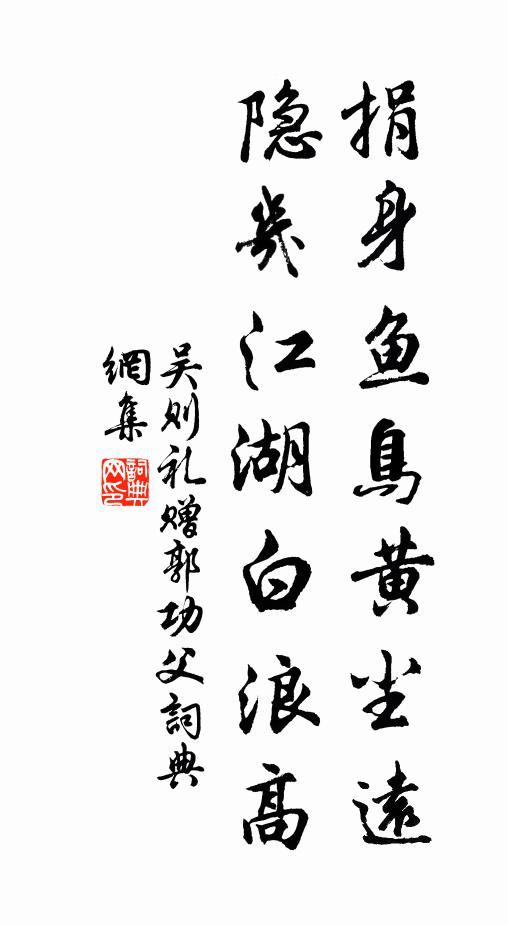 捐身鱼鳥黄尘遠
隐几江湖白浪高
吴则礼赠郭功父詞典
網集
詞典网印